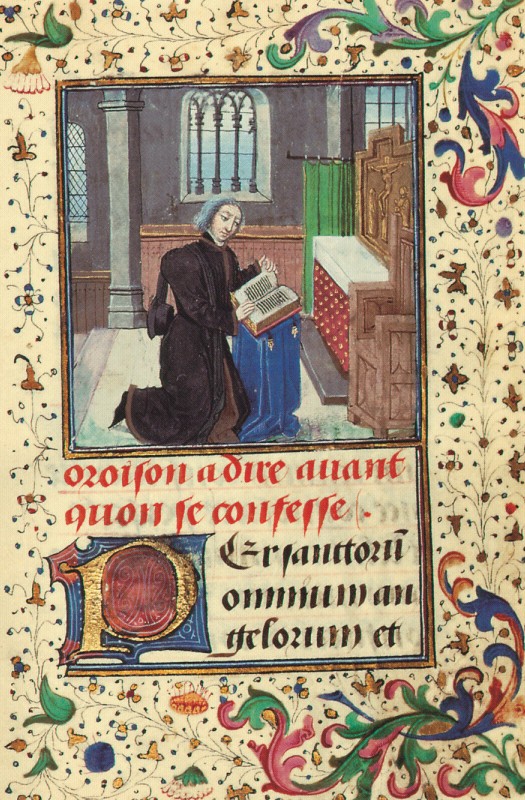 oroison a dire auant
quon se confesse.
PEr sanctorū
omnium an
gelorum et